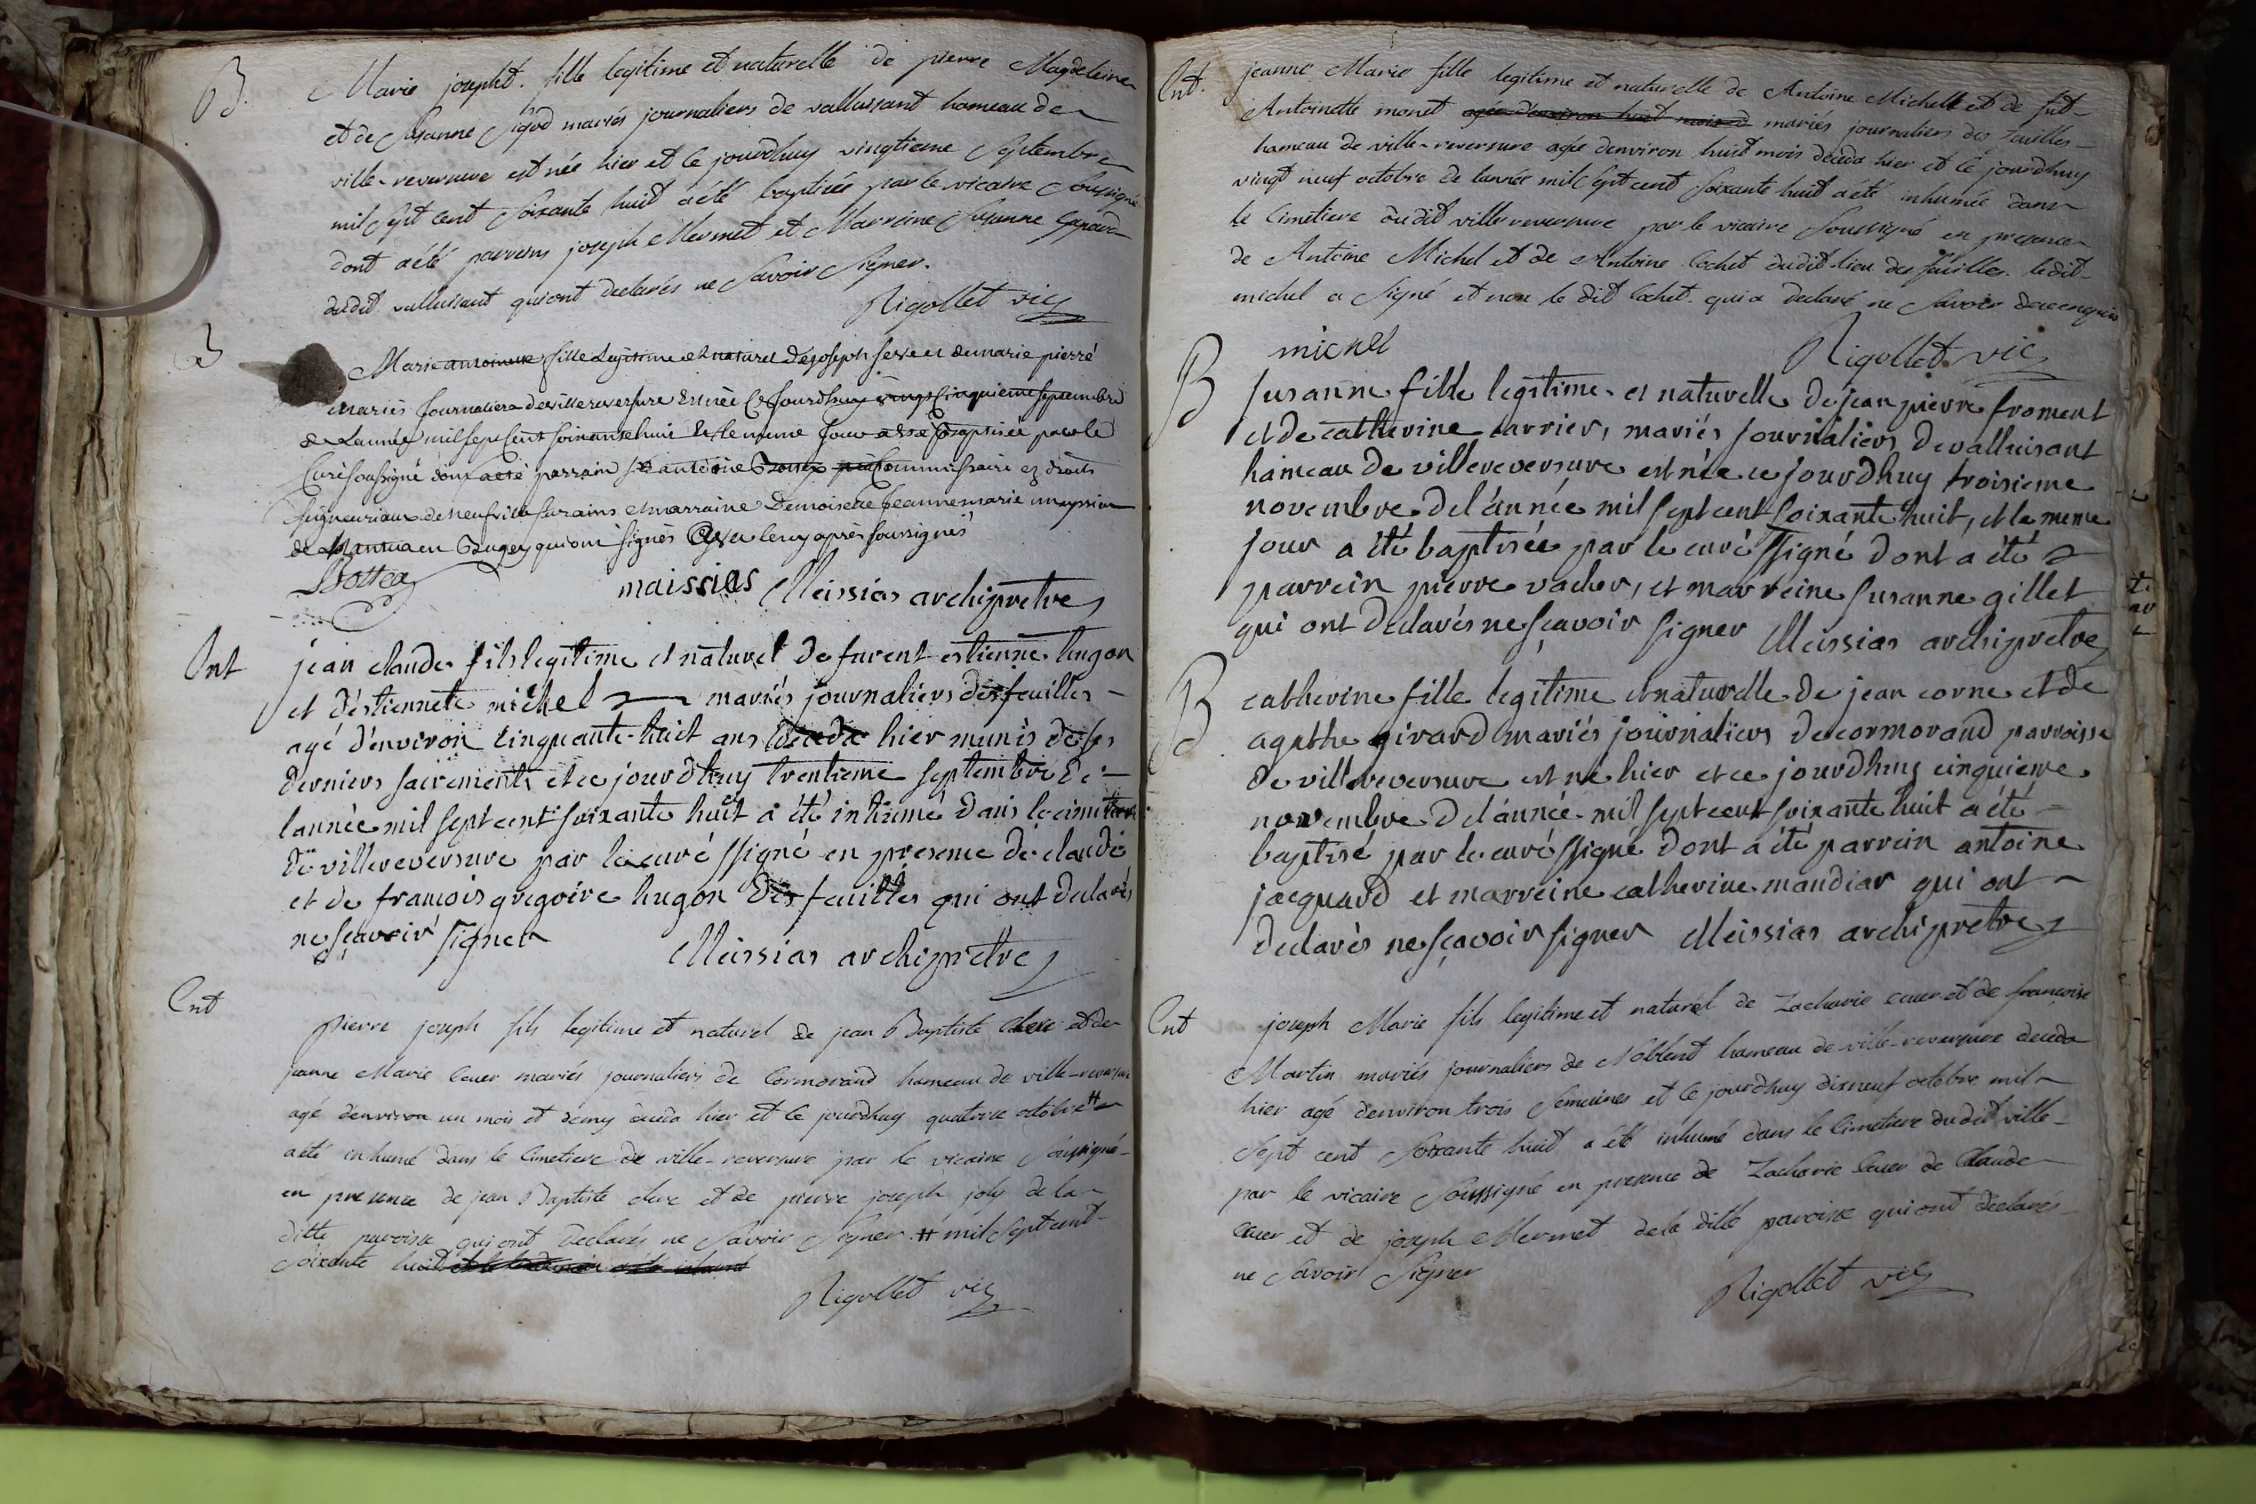 B.
Marie josepht. fille legitime et naturelle de pierre Magdeleine
et de Susanne Sigod mariés journaliers de vallussant hameau de
ville-reversure est née hier et ce jourdhuy vingtieme Septembre
mil Sept cent Soixante huit a été baptisée par le vicaire Soussigné
dont a été parrens joseph Mermet et Marreine Susanne
dudit vallussant qui ont declarés ne Savoir Signer.
Rigollet vic
B
Marie antoinette fille Legitime et naturel de joseph serve et de marie pierre
mariés journaliers de villereversure est née Ce Jourdhuy vingt Cinquieme septembre
de Lannée mil sept Cent soixante huit et le meme jour a été Baptisée par le
Curé soussigné dont a été parrain sr antoine Commissaire ez droits
seigneuriaux de neufville sur ains et marraine Demoiselle Jeanne marie
de en Bugey qui ont signés avec leroy après soussignés
maissias Meissias archipretre
Ent
jean claude fils legitime et naturel de furent estienne hugon
et d'estiennete michel mariés journaliers des feuilles
agé d'environ cinquante-huit ans décédé hier munis de ses
derniers sacrements et ce jourdhuy trentieme septembre de
lannée mil sept cent soixante huit a été inhumé dans le cimetiere
de villereversure par le curé ssigné en presence de claude
et de francois gregoire hugon des feuilles qui ont declarés
ne sçavoir signer Meissias archipretre
Ent
Pierre joseph fils legitime et naturel de jean Baptiste Clerc et de
jeanne Marie Cauer mariés journaliers de Cormorand hameau de ville-reversure
agé denviron un mois et demy deceda hier et ce jourdhuy quatorze octobre #
a été inhumé dans le Cimetiere de ville-reversure par le vicaire Soussigné
en presence de jean Baptiste clerc et de pierre joseph joly de la
ditte paroisse qui ont declarés ne Savoir Signer # mil Sept cent
Soixante huit
Rigollet vic
Ent.
jeanne Marie fille legitime et naturelle de Antoine Michel et de fut
Antoinette monet agée d'environ huit mois d mariés journaliers des feuilles
hameau de ville-reversure agée denviron huit mois deceda hier et ce jourdhuy
vingt neuf octobre de lannée mil Sept cent Soixante huit a été inhumée dans
le Cimetiere dudit ville reversure par le vicaire Soussigné en presence
de Antoine Michel et de Antoine Cochet dudit lieu des feuilles. ledit
michel a Signé et non le dit Cochet qui a declaré ne Savoir de ce enquis
michel
Rigollet vic
B
susanne fille legitime et naturelle de jean pierre froment
et de catherine carrier, mariés journaliers de valluisant
hameau de villereversure est née ce jourdhuy troisieme
novembre de l'année mil sept cent soixante huit, et le meme
jour a été baptisée par le curé ssigné dont a été
parrein pierre vacher, et marreine susanne gillet
qui ont declarés ne sçavoir signer Meissias archipretre
B.
catherine fille legitime et naturelle de jean corne et de
agathe girard mariés journaliers de cormorand parroisse
de villereversure est né hier et ce jourdhuy cinquieme
novembre de l'année mil sept cent soixante huit a été
baptisé par le curé ssigné dont a été parrein antoine
jacquard et marreine catherine mandiar qui ont
declarés ne sçavoir signer Meissias archipretre
Ent
joseph Marie fils legitime et naturel de Zacharie cauer et de françoise
Martin mariés journaliers de Noblent hameau de ville-reversure deceda
hier agé denviron trois Semaines et ce jourdhuy dixneuf octobre mil
Sept cent Soixante huit a été inhumé dans le Cimetiere dudit ville
par le vicaire Soussigné en presence de Zacharie Cauer de Claude
Cauer et de joseph Mermet de la ditte paroisse qui ont declarés
ne Savoir Signer
Rigollet vic